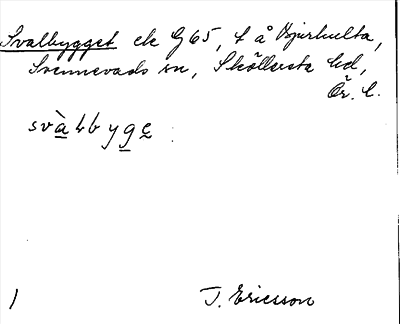 Svalbygget ek G 65, t å Bjurhulta,
Svennevads sn, Sköllersta hd,
Ör. l.
svàlbyge
1
J. Ericsson